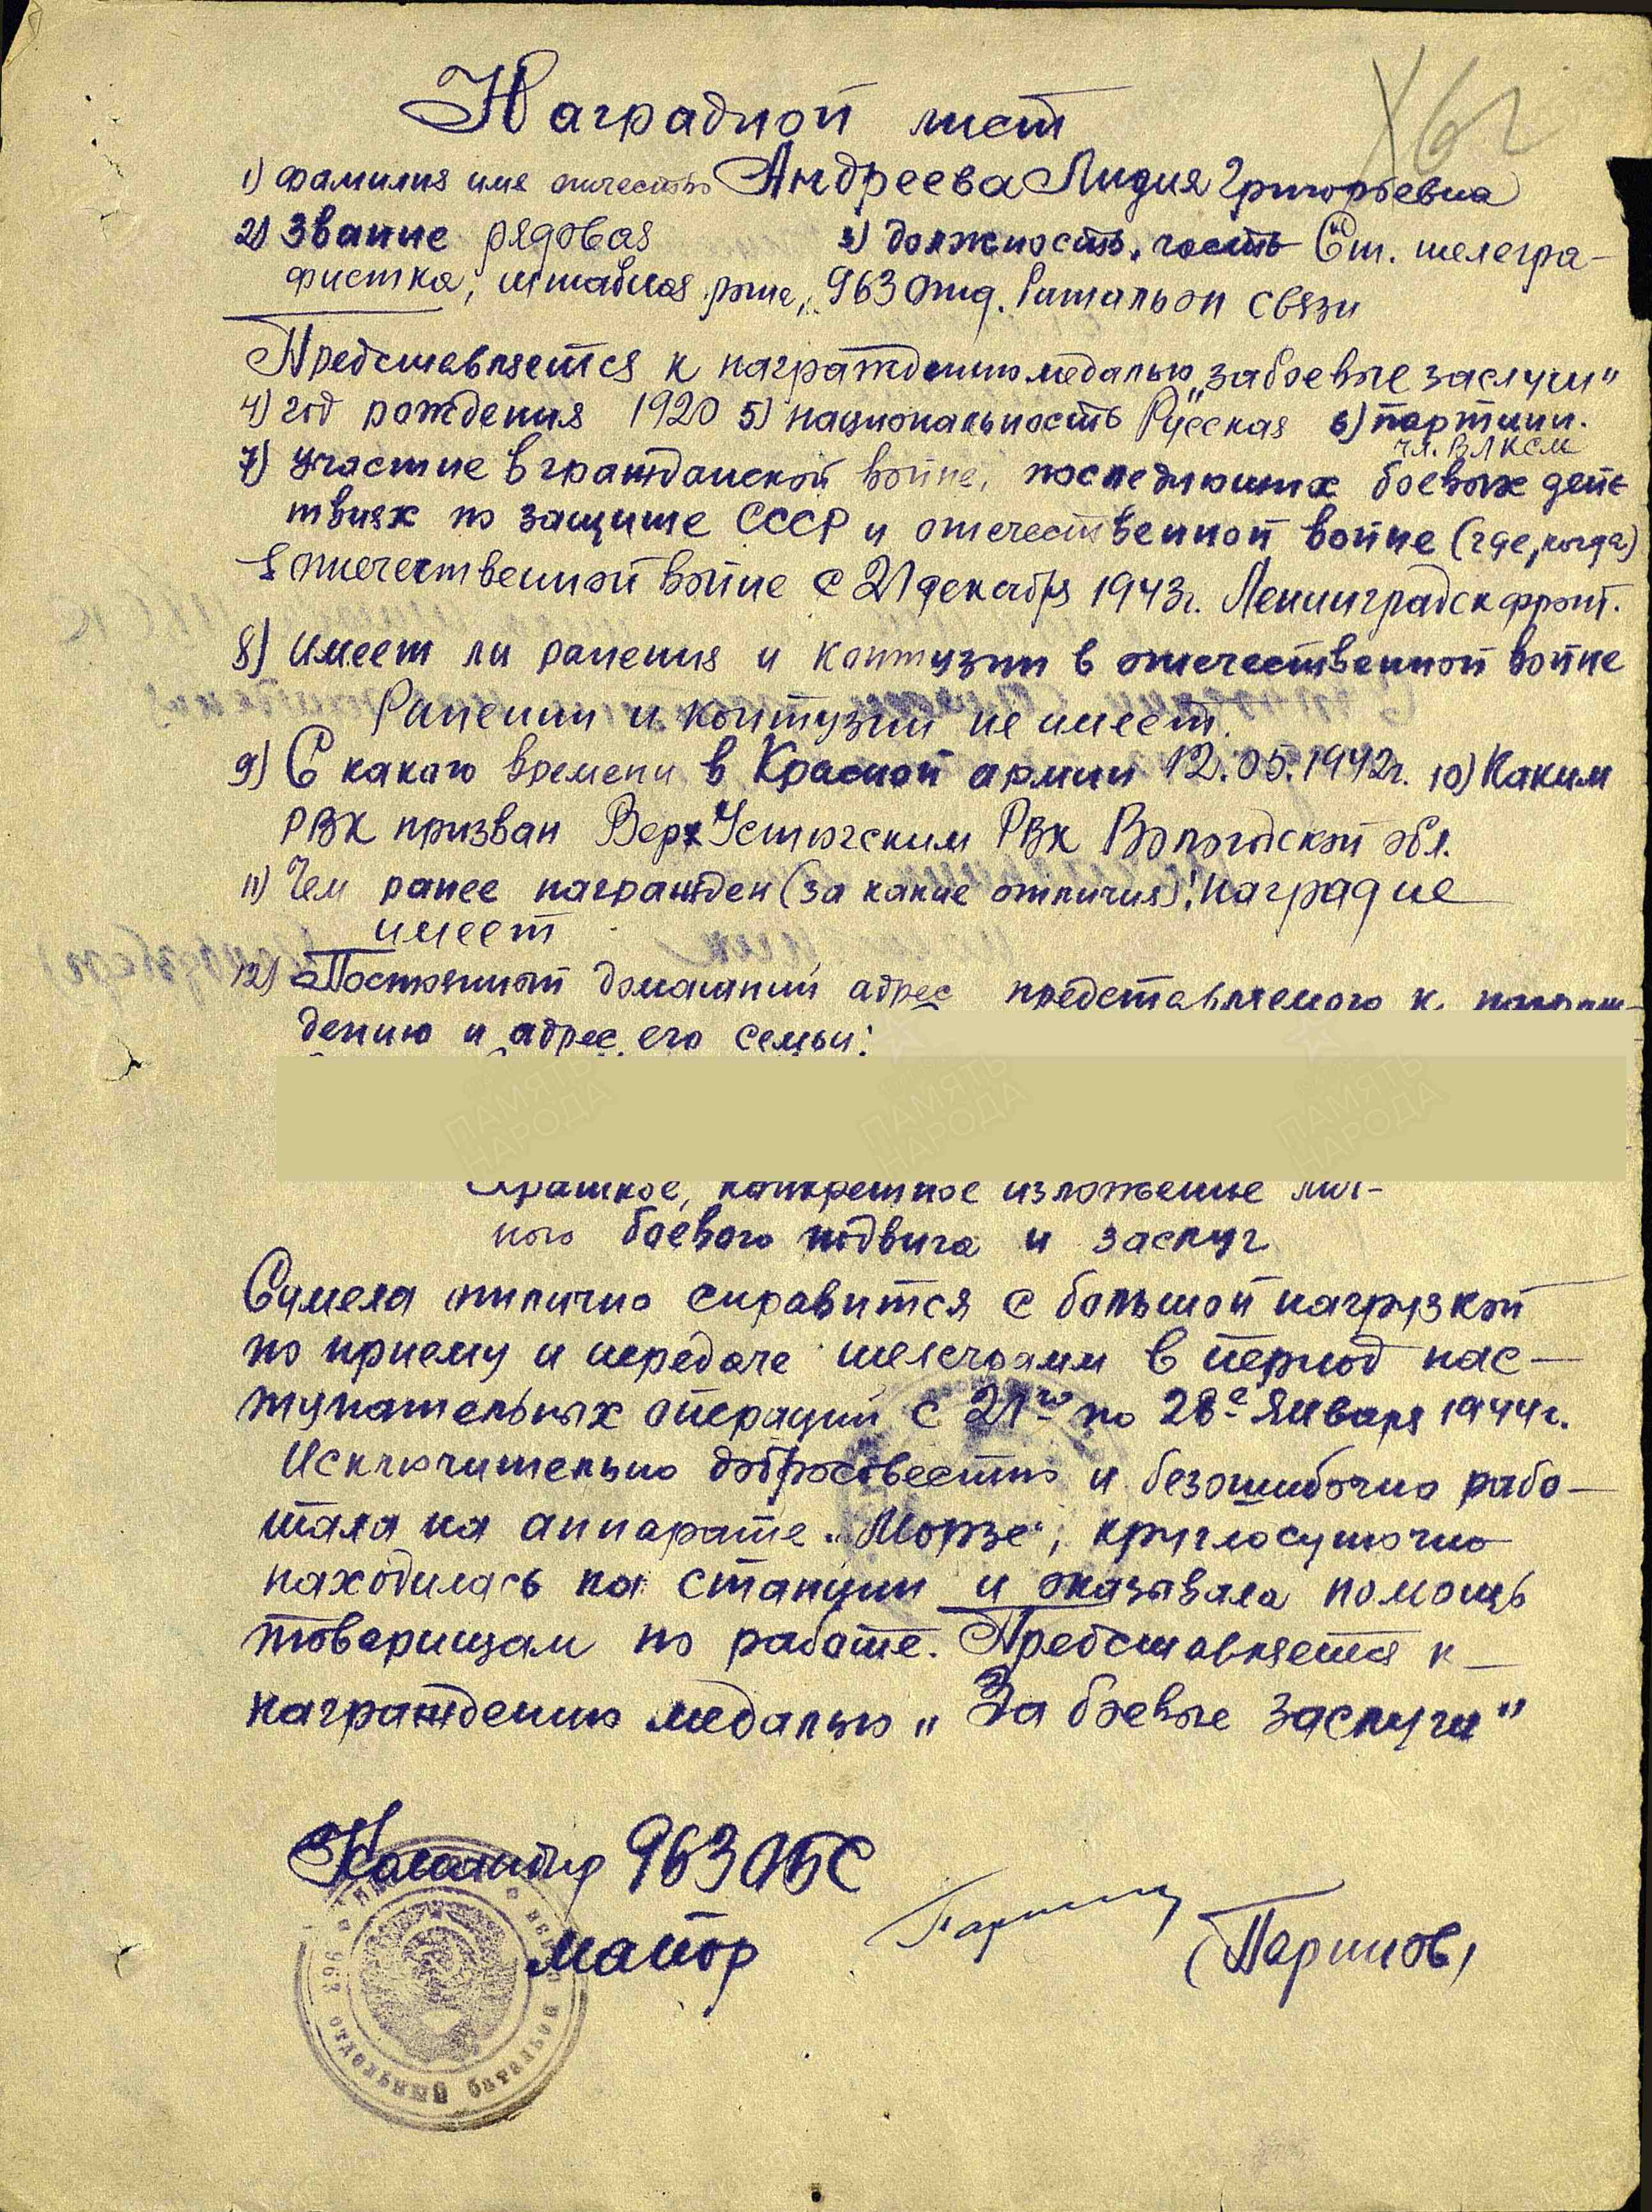 Наградной лист
1) фамилия имя отчество Андреева Лидия Григорьевна
2) Звание рядовая 3) должность, часть Ст. телегра-
фистка, штабная рота, 963 отд. батальон связи
Представляется к награждению медалью „за боевые заслуги"
4) год рождения 1920 5) национальность Русская 6) партийн.
чл. ВЛКСМ
7) участие в гражданской войне, последующих боевых дейс
твиях по защите СССР и отечественной войне (где, когда)
в отечественной войне с 21 декабря 1943г. Ленинградск фронт.
8) имеет ли ранения и контузии в отечественной войне
Ранении и контузии не имеет.
9) С какого времени в Красной армии 12.05.1942г. 10) Каким
РВК призван Верх Устюгским РВК Вологодской обл.
11) Чем ранее награжден (за какие отличия): наград не
имеет
12) Постоянный домашний адрес представляемого к награж-
дению и адрес его семьи:
ПАМЯТЬ НАРОДА ПАМЯТЬ НАРОДА ПАМЯТЬ НАРОДА
Краткое, конкретное изложение лич-
ного боевого подвига и заслуг
Сумела отлично справится с большой нагрузкой
по приему и передаче телеграмм в период нас-
тупательных операций с 21го по 28е января 1944г.
Исключительно добросовестно и безошибочно рабо-
тала на аппарате „Морзе", круглосуточно
находилась на станции и оказывала помощь
товарищам по работе. Представляется к
награждению медалью „За боевые заслуги"
Командир 963 ОБС
майор (Паршов)
963 отдельный батальон